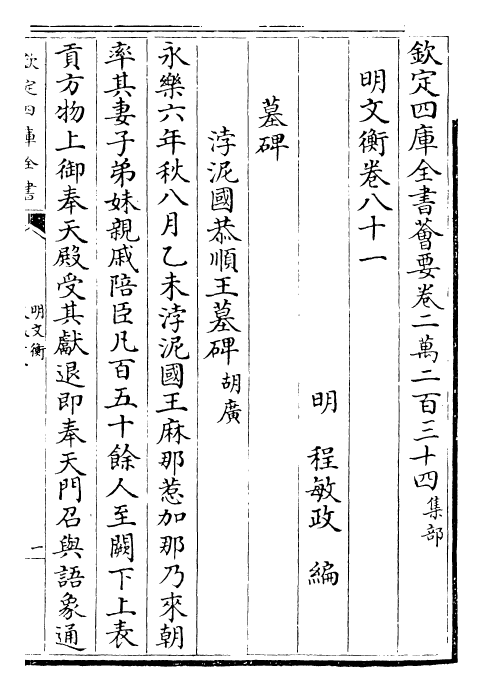 欽定四庫全書薈要卷二萬二百三十四集部
明文衡卷八十一
明 程敏政 編
墓碑
浡泥國恭順王墓碑 胡廣
永樂六年秋八月乙未浡泥國王麻那惹加那乃來朝
率其妻子弟妹親戚陪臣凡百五十餘人至闕下上表
貢方物上御奉天殿受其獻退即奉天門召與語象通
欽定四庫全書
明文衡
一